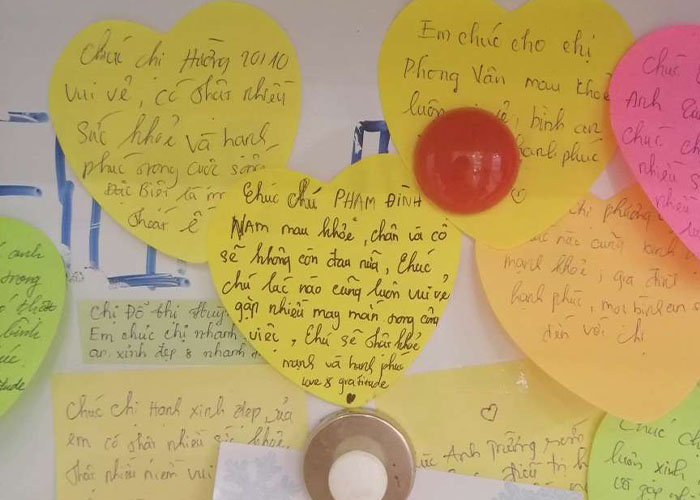 Chúc chị Hường 20/10
vui vẻ, có thật nhiều
sức khỏe và hạnh
phúc trong cuộc sống
Đặc Biệt là
thoát ế
Em chúc cho chị
Phong Vân mau khỏe
luôn vẻ, bình an
hạnh phúc
Chúc chú PHẠM ĐÌNH
NAM mau khỏe, chân và cổ
sẽ không còn đau nữa, Chúc
chú lúc nào cũng luôn vui vẻ
gặp nhiều may mắn trong công
việc, Chú sẽ thật khỏe
mạnh và hạnh phúc
love & gratitude
Chúc
Anh
chúc
nhiều
chị phương
lúc nào cũng
mạnh khỏe, gia đình
hạnh phúc, mọi bình an
đến với chị
anh
trong
thật
bình
Chị Đỗ thị thúy
Em chúc chị nhanh
an. xinh đẹp & nhanh
Chúc chị Hạnh xinh đẹp của
em có thật nhiều sức khỏe,
thật nhiều niềm vui
Chúc Anh Trường
điều trị
Chúc chị
luôn xinh
và gặp